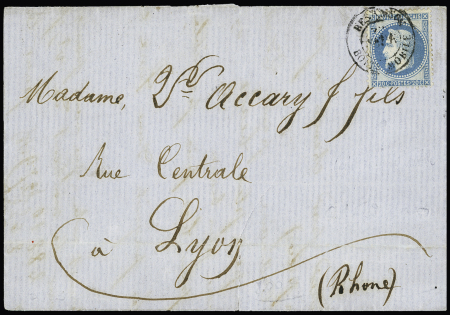 Madame, Vve Accary & fils
Rue Centrale
à Lyon
(Rhone)